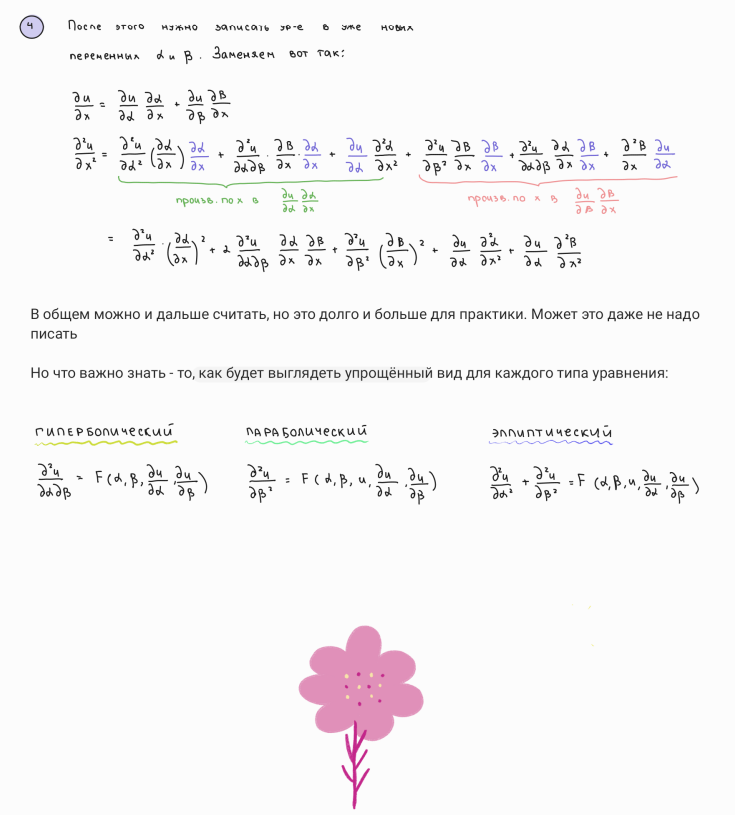 4 После этого нужно записать ур-е в уже новых
переменных α и β. Заменяем вот так:
∂u/∂x = ∂u/∂α ∂α/∂x + ∂u/∂β ∂β/∂x
∂²u/∂x² = ∂²u/∂α² (∂α/∂x) ∂α/∂x + ∂²u/∂α∂β · ∂β/∂x · ∂α/∂x + ∂u/∂α ∂²α/∂x² + ∂²u/∂β² ∂β/∂x ∂β/∂x + ∂²u/∂α∂β ∂α/∂x ∂β/∂x + ∂²β/∂x ∂u/∂α
произв. по x в ∂u/∂α ∂α/∂x произв. по x в ∂u/∂β ∂β/∂x
= ∂²u/∂α² · (∂α/∂x)² + 2 ∂²u/∂α∂β ∂α/∂x ∂β/∂x + ∂²u/∂β² (∂β/∂x)² + ∂u/∂α ∂²α/∂x² + ∂u/∂α ∂²β/∂x²
В общем можно и дальше считать, но это долго и больше для практики. Может это даже не надо
писать
Но что важно знать - то, как будет выглядеть упрощённый вид для каждого типа уравнения:
ГИПЕРБОЛИЧЕСКИЙ ПАРАБОЛИЧЕСКИЙ ЭЛЛИПТИЧЕСКИЙ
∂²u/∂α∂β = F(α, β, ∂u/∂α, ∂u/∂β) ∂²u/∂β² = F(α, β, u, ∂u/∂α, ∂u/∂β) ∂²u/∂α² + ∂²u/∂β² = F(α, β, u, ∂u/∂α, ∂u/∂β)